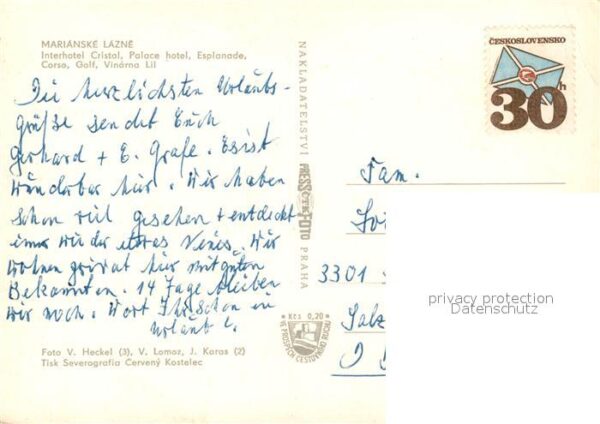 MARIÁNSKÉ LÁZNĚ
Interhotel Cristal, Palace hotel, Esplanade,
Corso, Golf, Vinárna Lil
Die herzlichsten Urlaubs-
grüße sendet Euch
Gerhard + E. Grafe. Es ist
wunderbar hier. Wir haben
schon viel gesehen + entdeckt
immer wieder etwas Neues. Wir
wohnen privat hier mit guten
Bekannten. 14 Tage bleiben
wir noch. Wort Ihr schon in
Urlaub?
Foto V. Heckel (3), V. Lomoz, J. Karas (2)
Tisk Severografia Červený Kostelec
NAKLADATELSTVÍ PRESSFOTO PRAHA
Kčs 0,20
VE PROSPĚCH CESTOVNÍHO RUCHU
ČESKOSLOVENSKO
30h
Fam.
3301
Salz
privacy protection
Datenschutz